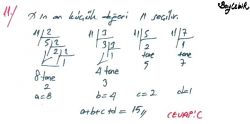 Beylebik
11/ x in en küçük değeri 11 seçilir.
11|2 11|3 11|5 11|7
5|2 3|3 2 1
2|2 1|1 tane tane
1|1 5 7
8 tane 4 tane
2 3
a=8 b=4 c=2 d=1
a+b+c+d=15//
CEVAP: C